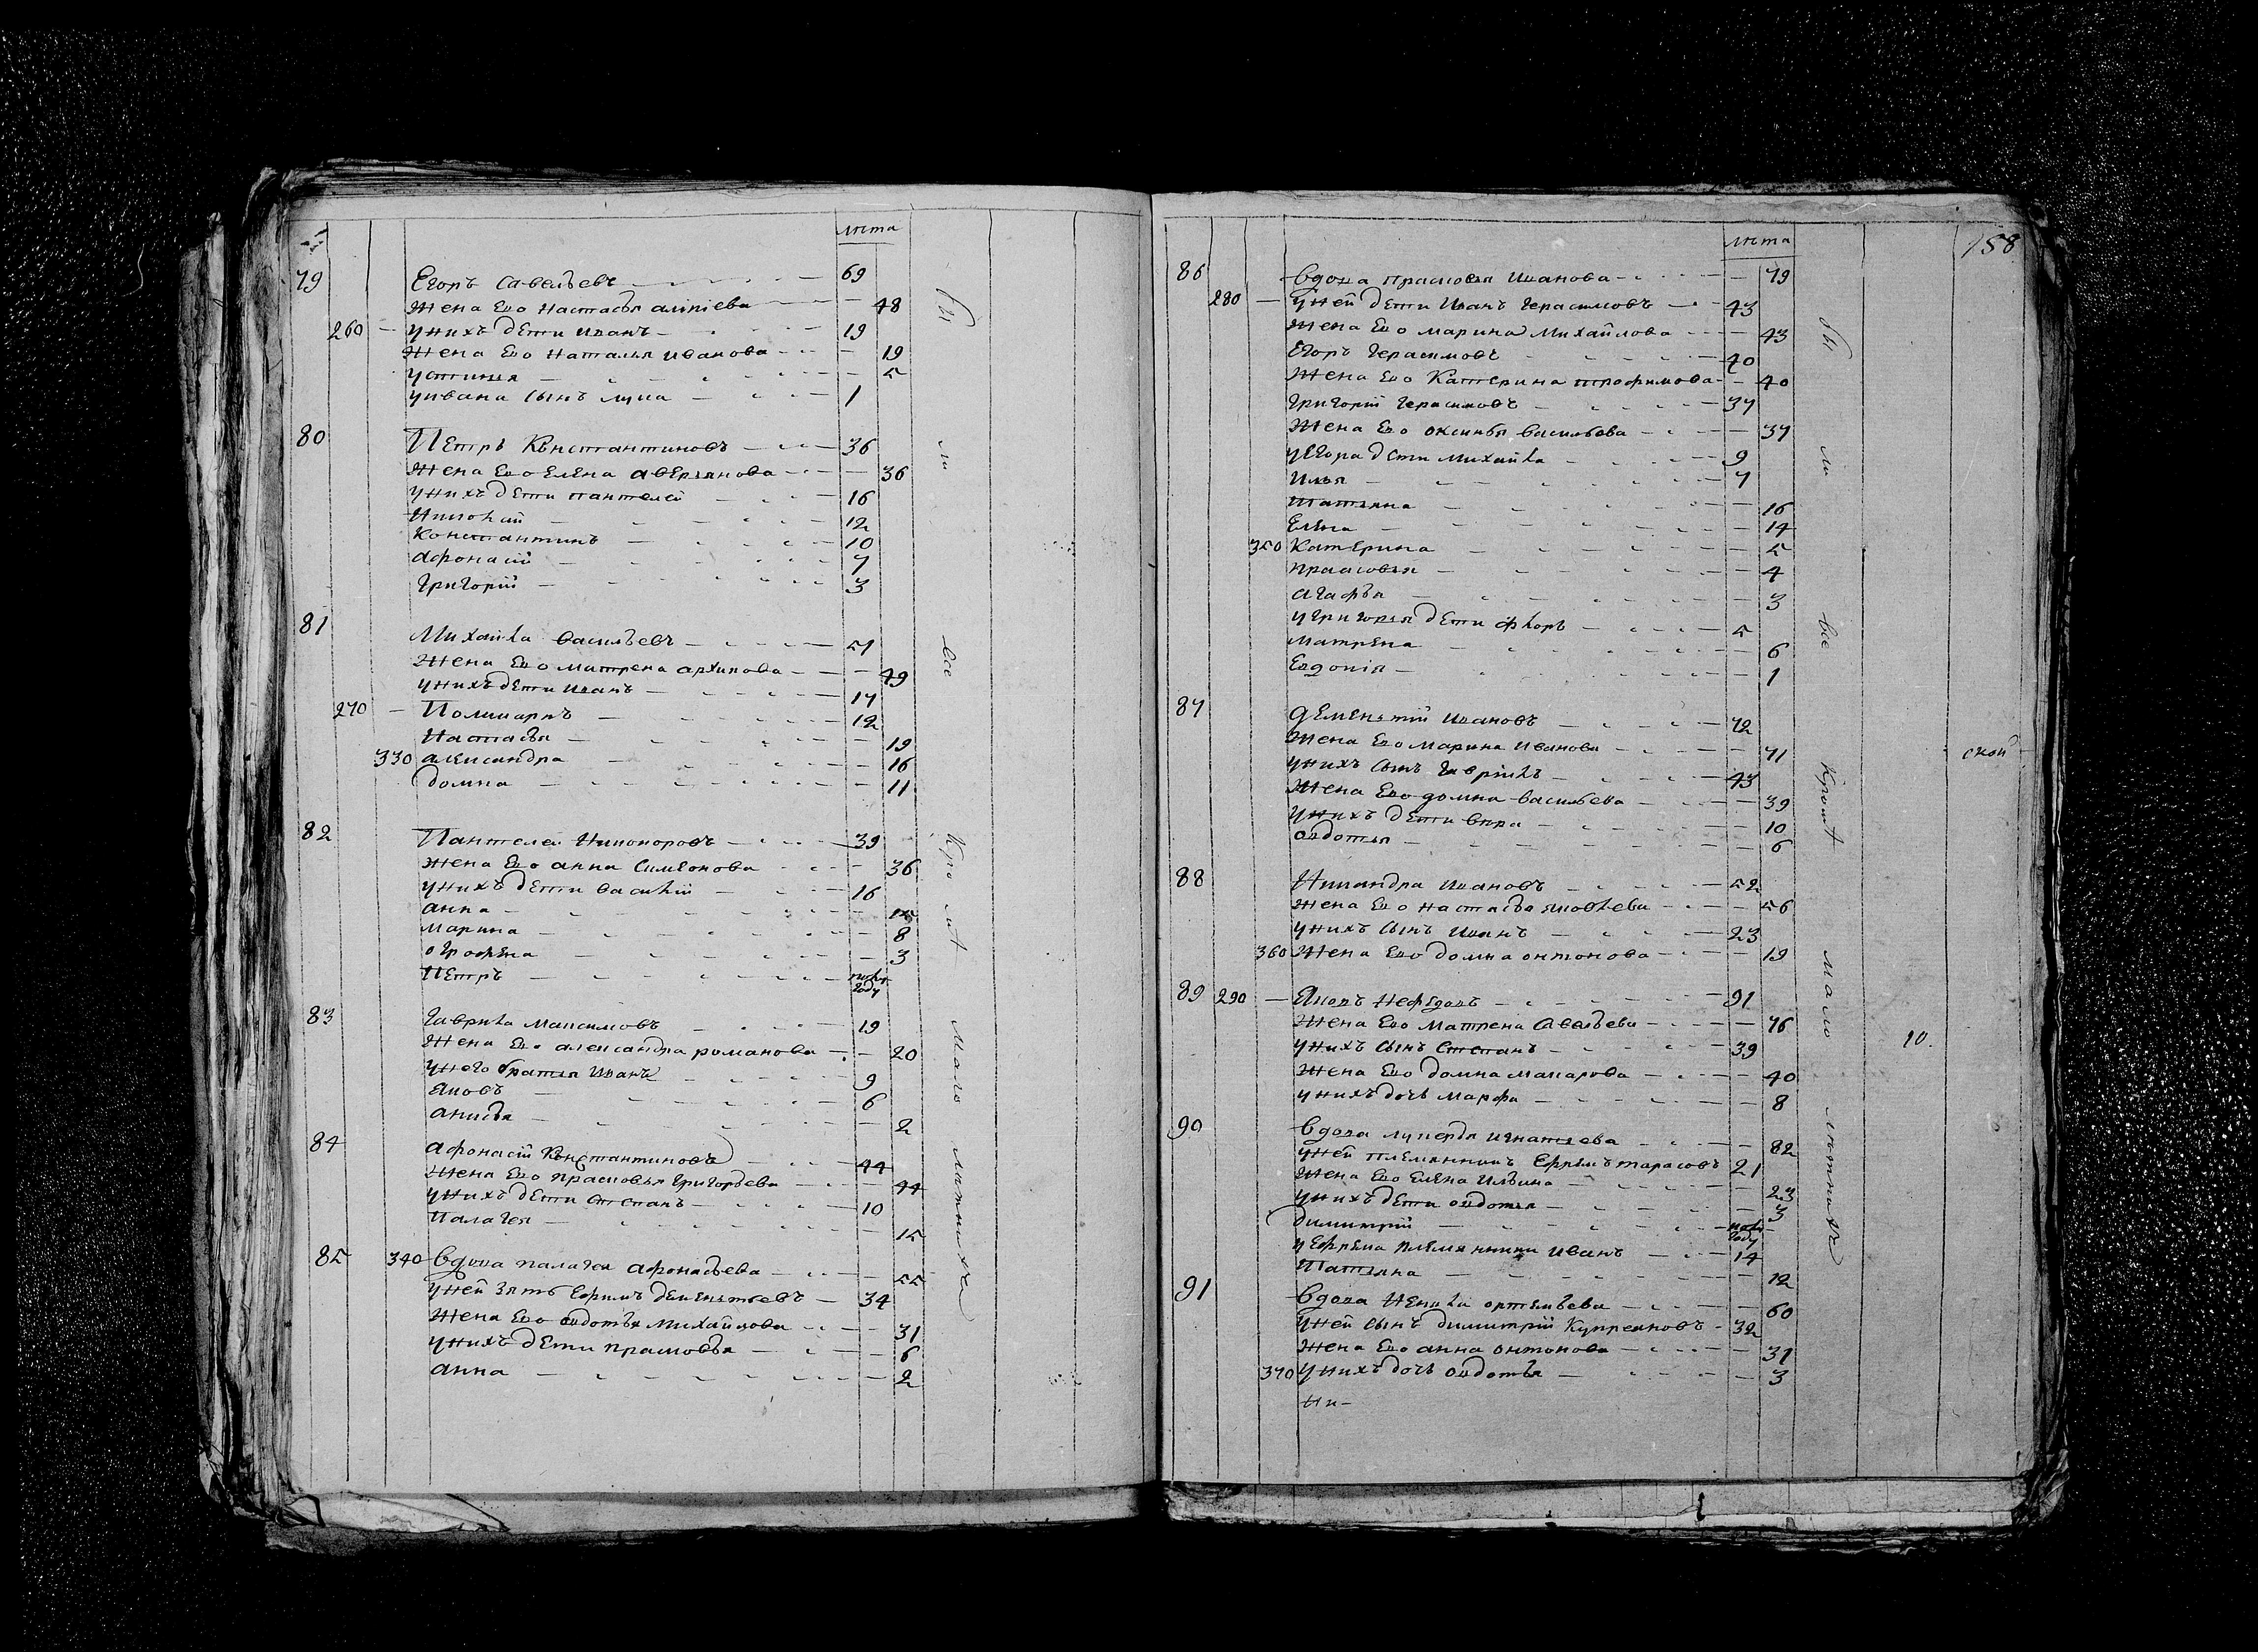 лѣта
79 Егоръ Савельевъ 69
жена Ево Настасья алимпіева 48
260 унихъ дети Иванъ 19
жена Ево Наталья Иванова 19
устинья 5
уивана сынъ лука 1
80 Петръ Константиновъ 36
жена Ево Елена Аверьянова 36
унихъ дети пантелей 16
Николай 12
Константинъ 10
афонасій 7
григорій 3
81 Михаила васильевъ 51
жена Ево матрена архипова 49
унихъ дети Иванъ 17
270 Поликарпъ 12
Настасья 19
330 александра 16
домна 11
82 Пантелей Никоноровъ 39
жена Ево анна Симеонова 36
унихъ дети василій 16
анна 15
марина 8
огрофена 3
Петръ полу году
83 гаврила максимовъ 19
жена Ево александра романова 20
унего братья Иванъ 9
яковъ 6
анисья 2
84 афонасій Константиновъ 44
жена Ево прасковья григорьева 44
унихъ дети Степанъ 10
палагея 15
85 340 вдова палагея афонасьева 55
уней зять Ефимъ дементьевъ 34
жена Ево овдотья михайлова 31
унихъ дети прасковья 6
анна 2
бы ли все Кромѣ мало лѣтнихъ
158
лѣта
86 вдова прасковья Иванова 79
280 уней дети Иванъ герасимовъ 43
жена Ево марина михайлова 43
Егоръ герасимовъ 40
жена Ево Катерина трофимова 40
григорій герасимовъ 37
жена Ево оксинья васильева 37
уЕгора дети михаила 9
илья 7
татьяна 16
Елена 14
350 Катерина 5
прасковья 4
агафья 3
угригорья дети флоръ 5
матрена 6
Евдокія 1
87 дементій Ивановъ 72
жена Ево марина Иванова 71
унихъ сынъ гаврила 43
жена Ево домна васильева 39
унихъ дети вера 10
овдотья 6
88 Никандра Ивановъ 52
жена Ево настасья яковлева 56
унихъ сынъ Иванъ 23
360 жена Ево домна онтонова 19
89 290 Яковъ Нефедовъ 91
жена Ево матрена Савельева 76
унихъ сынъ Степанъ 39
жена Ево домна макарова 40
унихъ дочь марфа 8
90 вдова лукерья игнатьева 82
уней племянникъ Ефремъ тарасовъ 21
жена Ево Елена Ильина 23
унихъ дети овдотья 3
димитрій полу году
уЕфрема племянники иванъ 14
татьяна 12
91 вдова Ненила ортемьева 60
уней сынъ димитрій Купреяновъ 32
жена Ево анна онтонова 31
370 унихъ дочь овдотья 3
Ни-
бы ли все Кромѣ мало лѣтнихъ
10.
ской